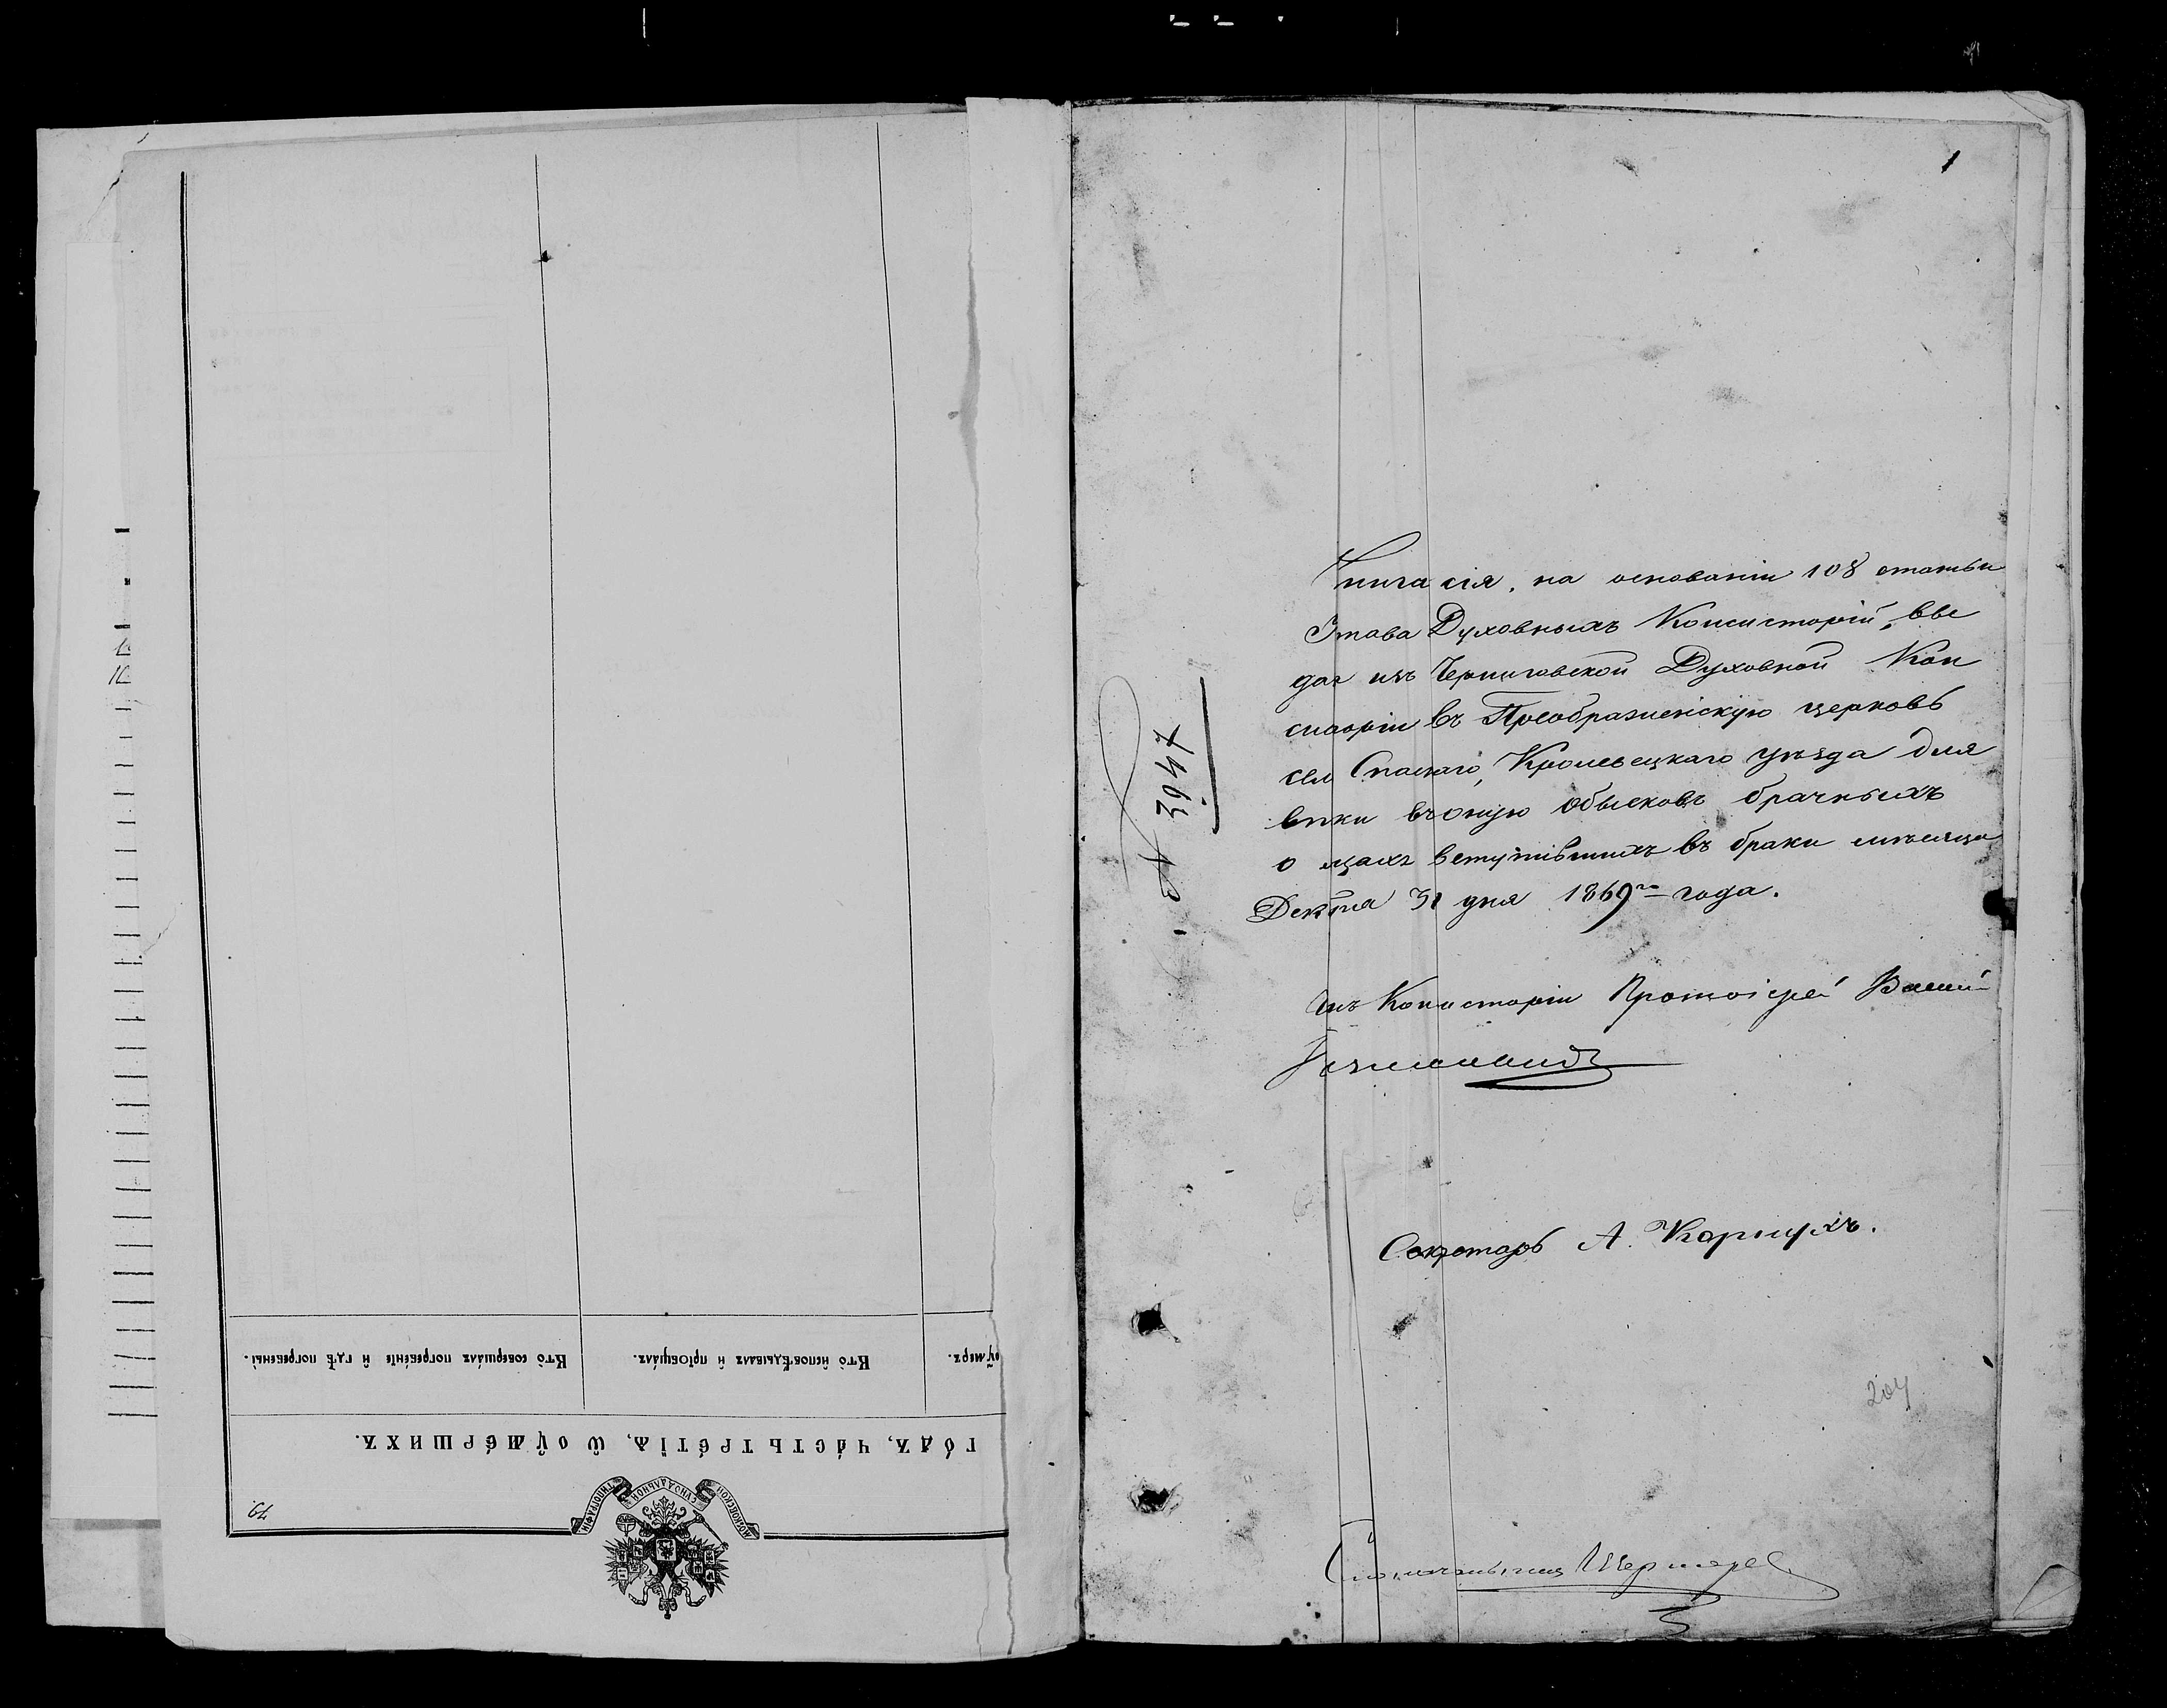 Кто̀ соверша́лъ погребе́нїе и҆ гдѣ̀ погребены̀.
Кто̀ и҆сповѣ́дывалъ и҆ прїобща́лъ.
оу҆меръ.
го́дъ, ча́сть тре́тїѧ, ѡ҆ оу҆ме́ршихъ.
московской сѵнодальной типографїи
79.
1
Книга сія, на основаніи 108 статьи
Устава Духовныхъ Консисторій, вы
дана изъ Черниговской Духовной Кон
систоріи въ Преображенскую церковь
села Спаскаго, Кролевецкаго уѣзда для
въ оную обысковъ брачныхъ
о лицахъ вступившихъ въ браки мѣсяца
Декабря 31 дня 1869го года.
Членъ Консисторіи Протоіерей Василій
Секретарь А.
Столоначальникъ
3947
204